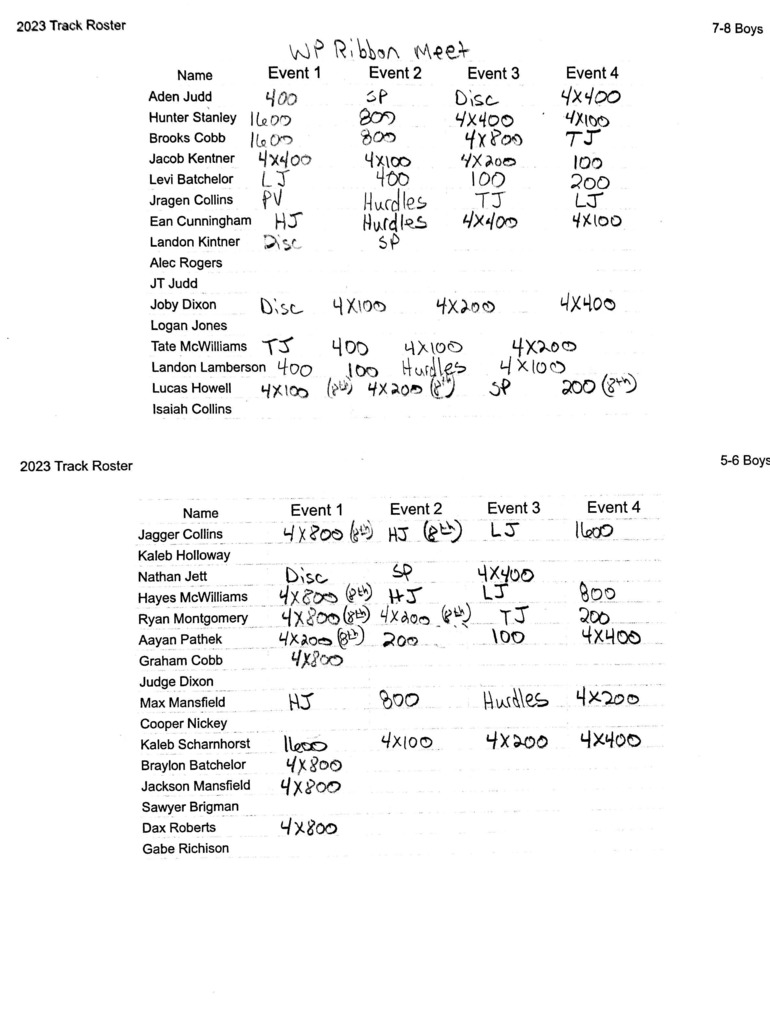 2023 Track Roster 7-8 Boys
WP Ribbon Meet
Name Event 1 Event 2 Event 3 Event 4
Aden Judd 400 SP Disc 4X400
Hunter Stanley 1600 800 4X400 4X100
Brooks Cobb 1600 800 4X800 TJ
Jacob Kentner 4X400 4X100 4X200 100
Levi Batchelor LJ 400 100 200
Jragen Collins PV Hurdles TJ LJ
Ean Cunningham HJ Hurdles 4X400 4X100
Landon Kintner Disc SP
Alec Rogers
JT Judd
Joby Dixon Disc 4X100 4X200 4X400
Logan Jones
Tate McWilliams TJ 400 4X100 4X200
Landon Lamberson 400 100 Hurdles 4X100
Lucas Howell 4X100 (8th) 4X200 (8th) SP 200 (8th)
Isaiah Collins
2023 Track Roster 5-6 Boys
Name Event 1 Event 2 Event 3 Event 4
Jagger Collins 4X800 (8th) HJ (8th) LJ 1600
Kaleb Holloway
Nathan Jett Disc SP 4X400
Hayes McWilliams 4X800 (8th) HJ LJ 800
Ryan Montgomery 4X800 (8th) 4X200 (8th) TJ 200
Aayan Pathek 4X200 (8th) 200 100 4X400
Graham Cobb 4X800
Judge Dixon
Max Mansfield HJ 800 Hurdles 4X200
Cooper Nickey
Kaleb Scharnhorst 1600 4X100 4X200 4X400
Braylon Batchelor 4X800
Jackson Mansfield 4X800
Sawyer Brigman
Dax Roberts 4X800
Gabe Richison